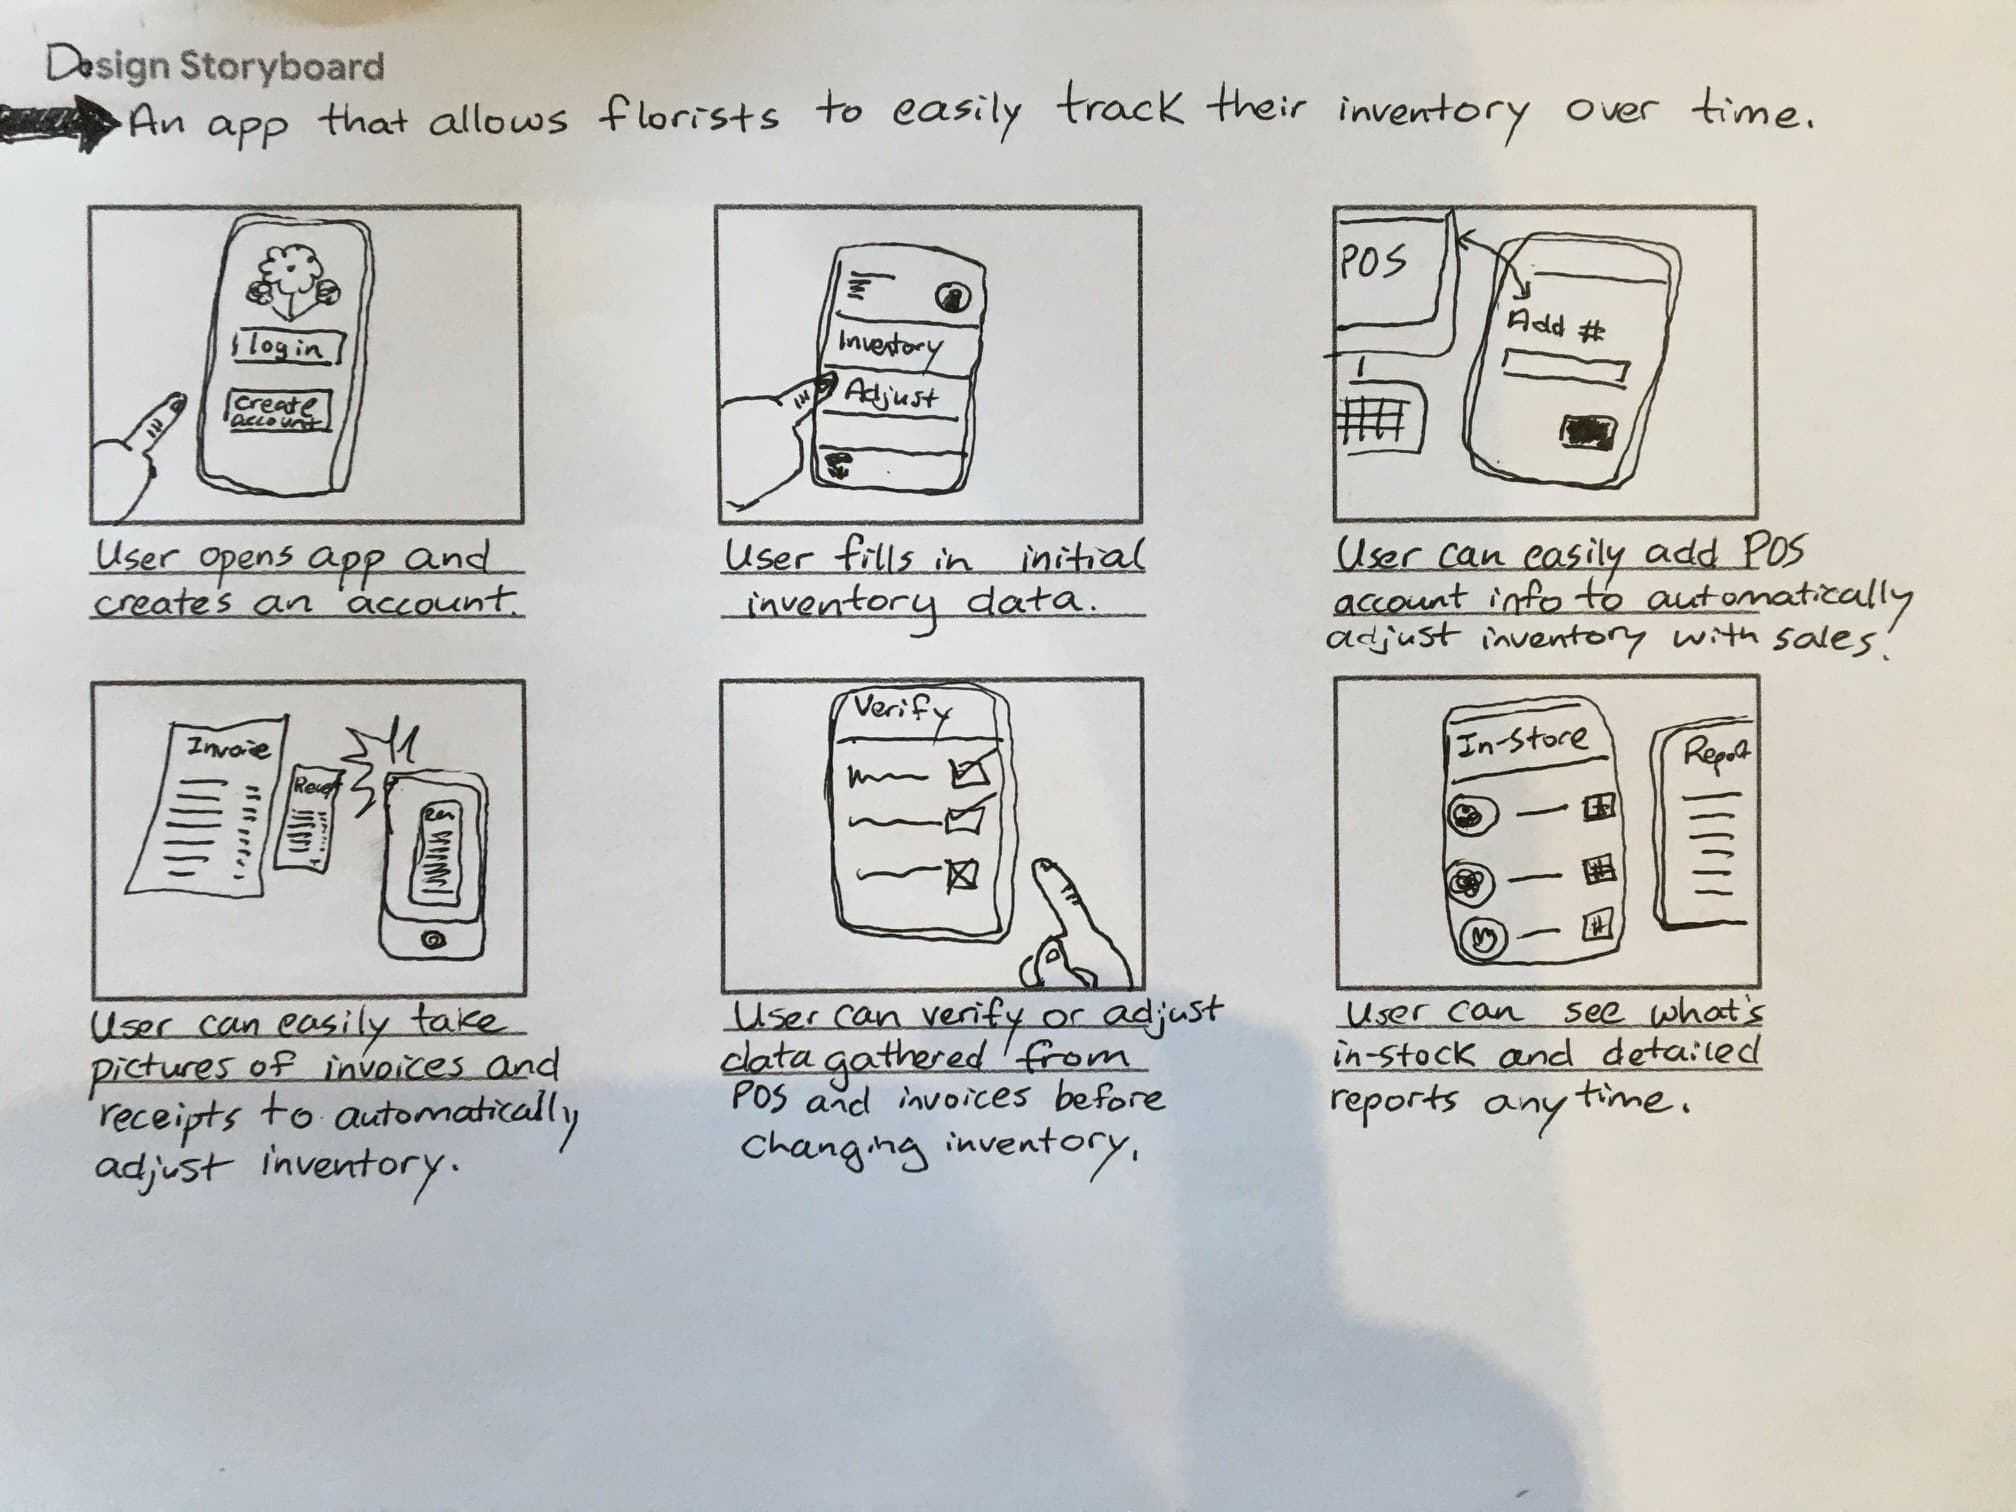 Design Storyboard
An app that allows florists to easily track their inventory over time.
login
create
account
User opens app and
creates an account.
Inventory
Adjust
User fills in initial
inventory data.
POS
Add #
User can easily add POS
account info to automatically
adjust inventory with sales.
Invoice
User can easily take
pictures of invoices and
receipts to automatically
adjust inventory.
Verify
User can verify or adjust
data gathered from
POS and invoices before
changing inventory.
In-Store
#
#
#
Report
User can see what's
in-stock and detailed
reports anytime.